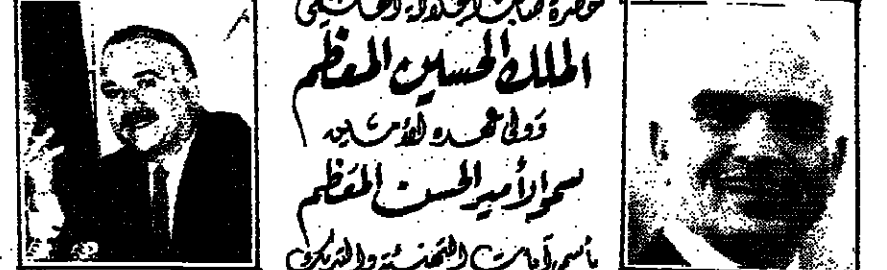 حضرة صاحب الجلالة الهاشمية
الملك الحسين المعظم
وولي عهده الأمين
سمو الأمير الحسن المعظم
بأسمى آيات التهنئة والتبريك